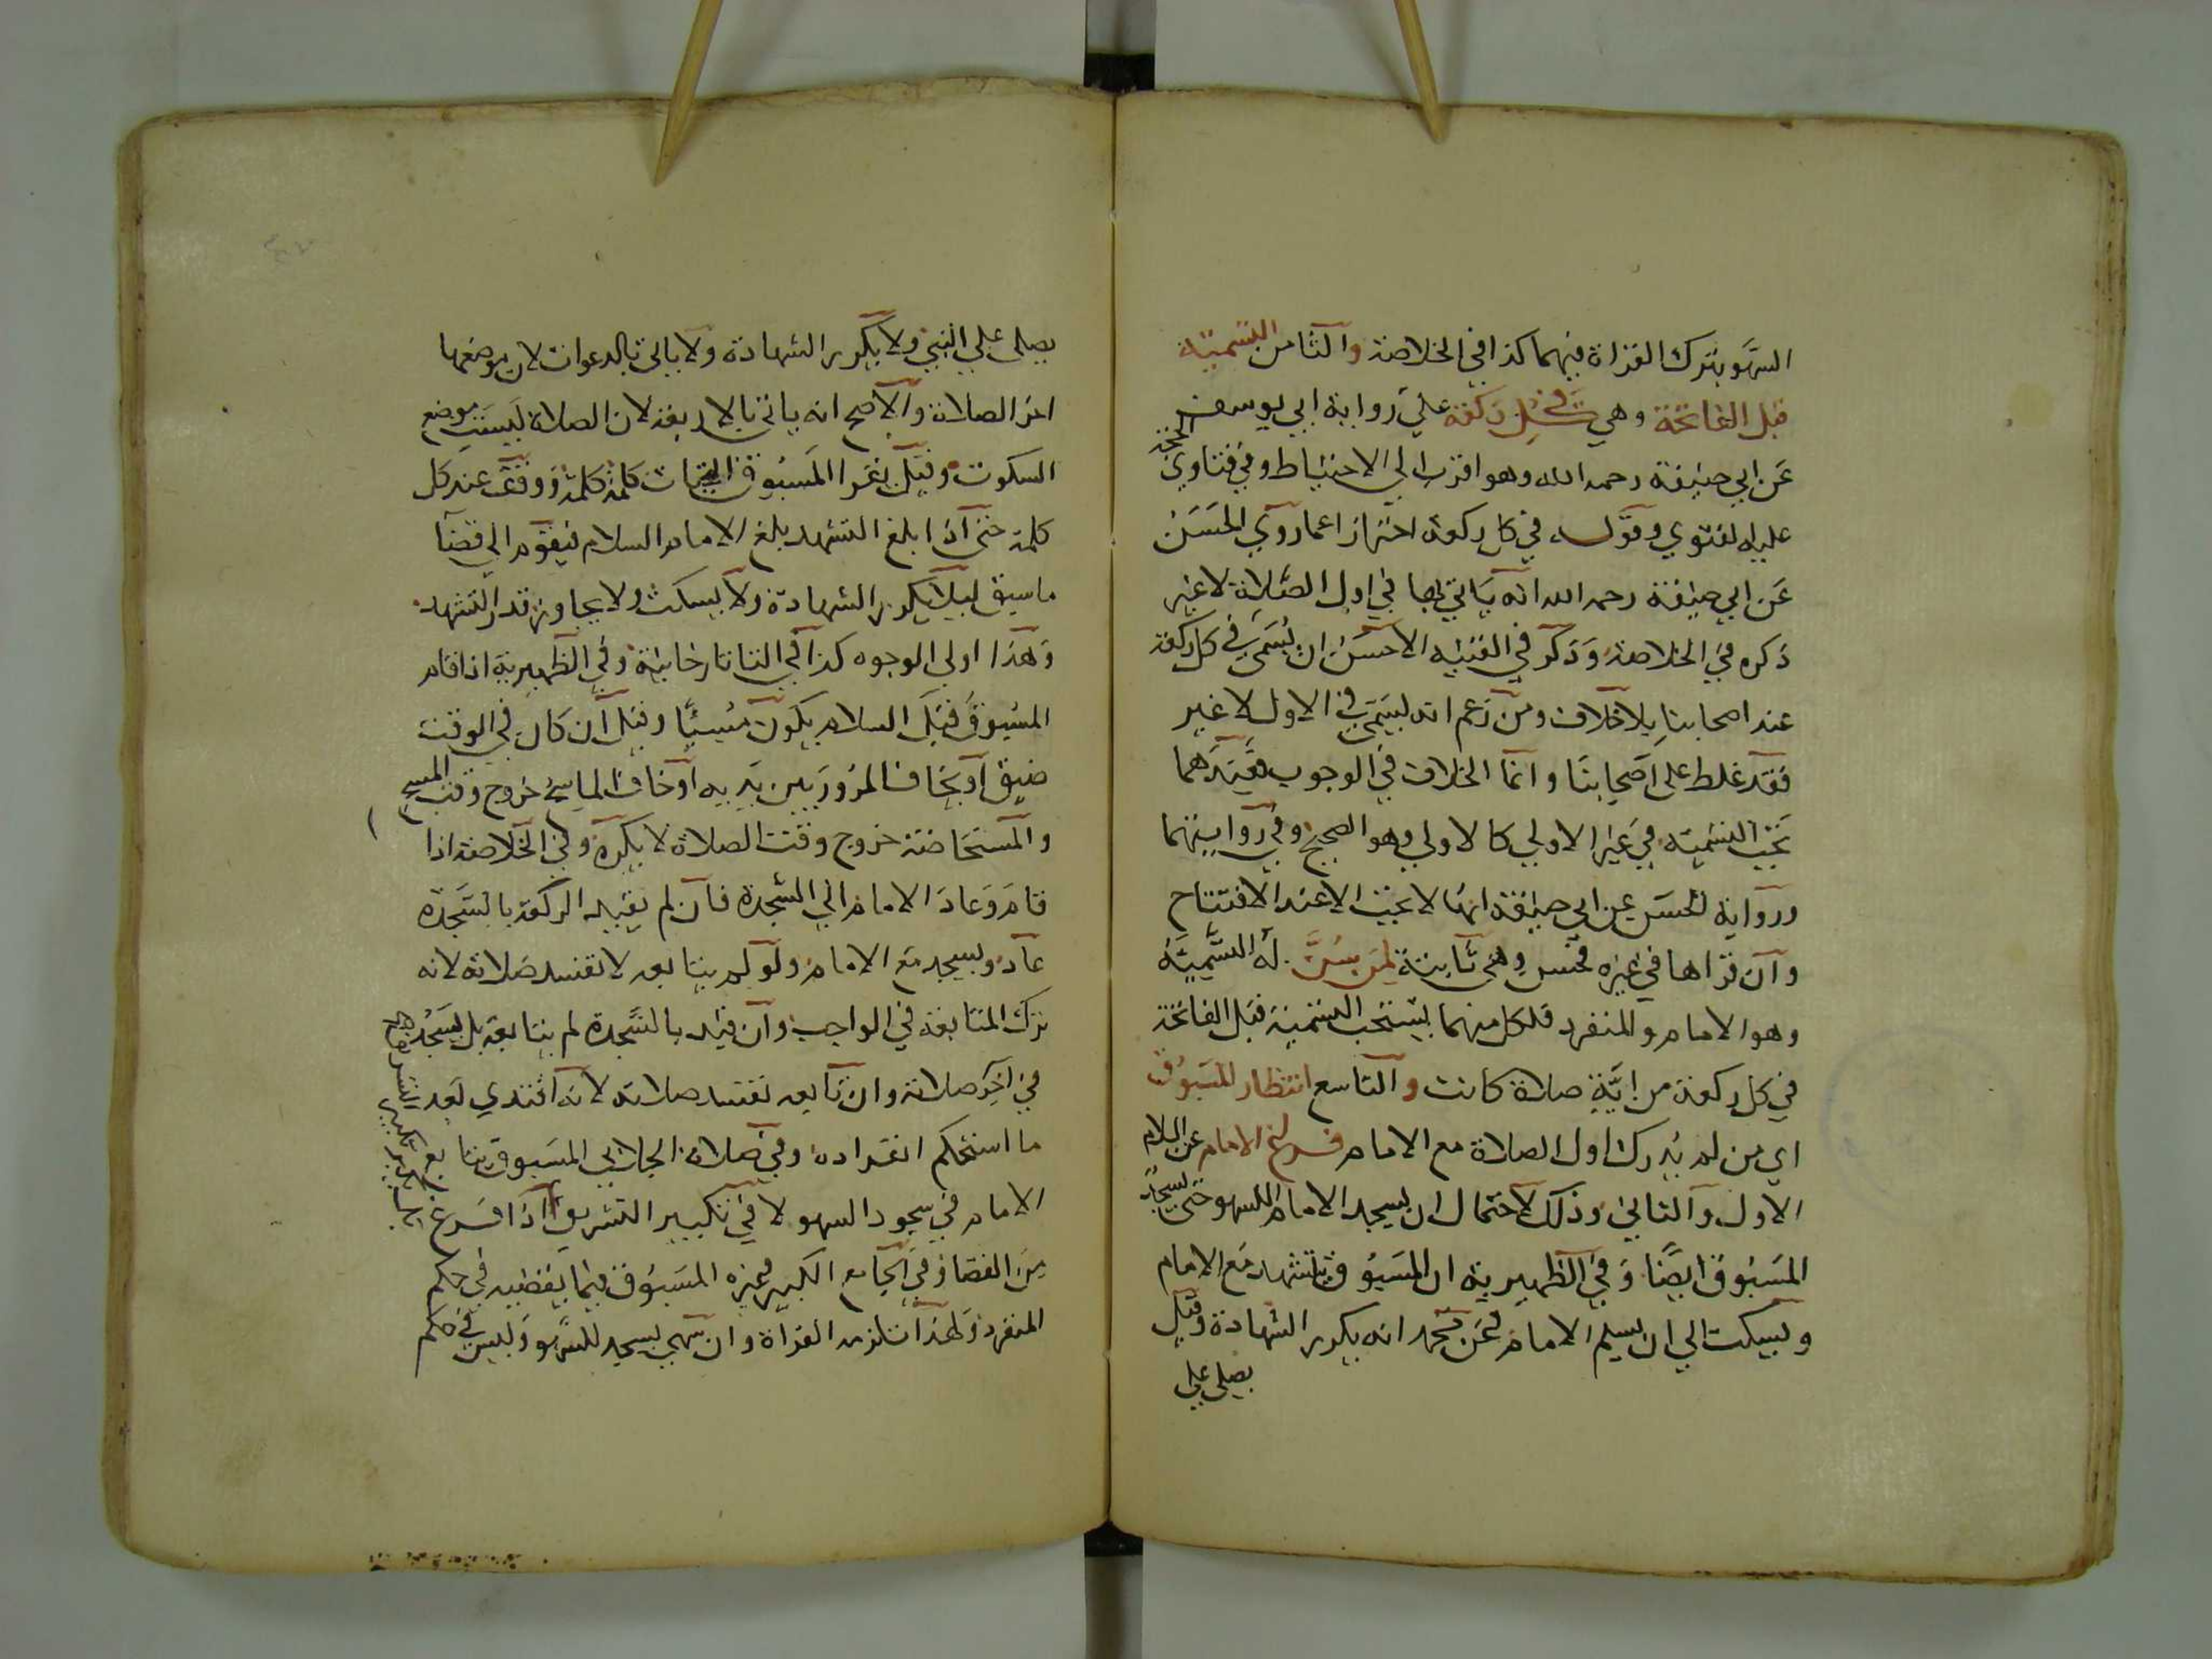 السهو بترك القراة فيهما كذا في الخلاصة والثامن التسمية
قبل الفاتحة وهي في كل ركعة علي رواية ابي يوسف
عن ابي حنيفة رحمه الله وهو اقرب الي الاحتياط وفي فتاوي الحجة
عليه الفتوي وقوله في كل ركعة احتراز اعما روي الحسن
عن ابي حنيفة رحمه الله انه ياتي بها في اول الصلاة لا غير
ذكره في الخلاصة وذكر في القنيه الاحسن ان يسمي في كل ركعة
عند اصحابنا بلا خلاف ومن زعم انه يسمي في الاول لا غير
فقد غلط على اصحابنا وانما الخلاف في الوجوب فعندهما
تجب التسمية في غير الاولي كالاولي وهو الصحيح وفي روايتهما
ورواية الحسن عن ابي حنيفة انها لا تجب الا عند الافتتاح
وان قراها في غيره فحسن وهي ثابتة لمن يسن له التسمية
وهو الامام والمنفرد فلكل منهما يستحب التسمية قبل الفاتحة
في كل ركعة من اية صلاة كانت والتاسع انتظار المسبوق
اي من لم يدرك اول الصلاة مع الامام فراغ الامام عن السلام
الاول والثاني وذلك لاحتمال ان يسجد الامام للسهو حتي يسجد
المسبوق ايضا وفي الظهيرية ان المسبوق يتشهد مع الامام
ويسكت الي ان يسلم الامام فعن محمد انه يكرر الشهادة وقيل
يصلي علي
يصلى علي النبي ولا يكرر الشهادة ولا ياتي بالدعوات لان موضعها
اخر الصلاة والاصح انه ياتي بالاربعة لان الصلاة ليست موضع
السكوت وقيل يقرا المسبوق التحيات كلمة كلمة ووقف عند كل
كلمة حتى اذا بلغ التشهد بلغ الامام السلام فيقوم الي قضا
ما سبق ليلا يكرر الشهادة ولا يسكت ولا يجاوز قدر التشهد
وهذا اولي الوجوه كذا في التاتارخانية وفي الظهيرية اذا قام
المسبوق قبل السلام يكون مسيئا وقيل ان كان في الوقت
ضيق او يخاف المرور بين يديه او خاف الماسح خروج وقت المسح
والمستحاضة خروج وقت الصلاة لا يكره وفي الخلاصة اذا
قام وعاد الامام الي السجدة فان لم يقيد الركعة بالسجدة
عاد ويسجد مع الامام ولو لم يتابعه لا تفسد صلاته لانه
ترك المتابعة في الواجب وان قيد بالسجدة لم يتابعه بل يسجد
في اخر صلاته وان تابعه تفسد صلاته لانه اقتدي بعد
ما استحكم انفراده وفي صلاة الجلابي المسبوق يتابع
الامام في سجود السهو لا في تكبير التشريق اذا فرغ
من القضا وفي الجامع الكبير وغيره المسبوق فيما يقضيه في حكم
المنفرد ولهذا تلزمه القراة وان سهي يسجد للسهو وليس في حكم